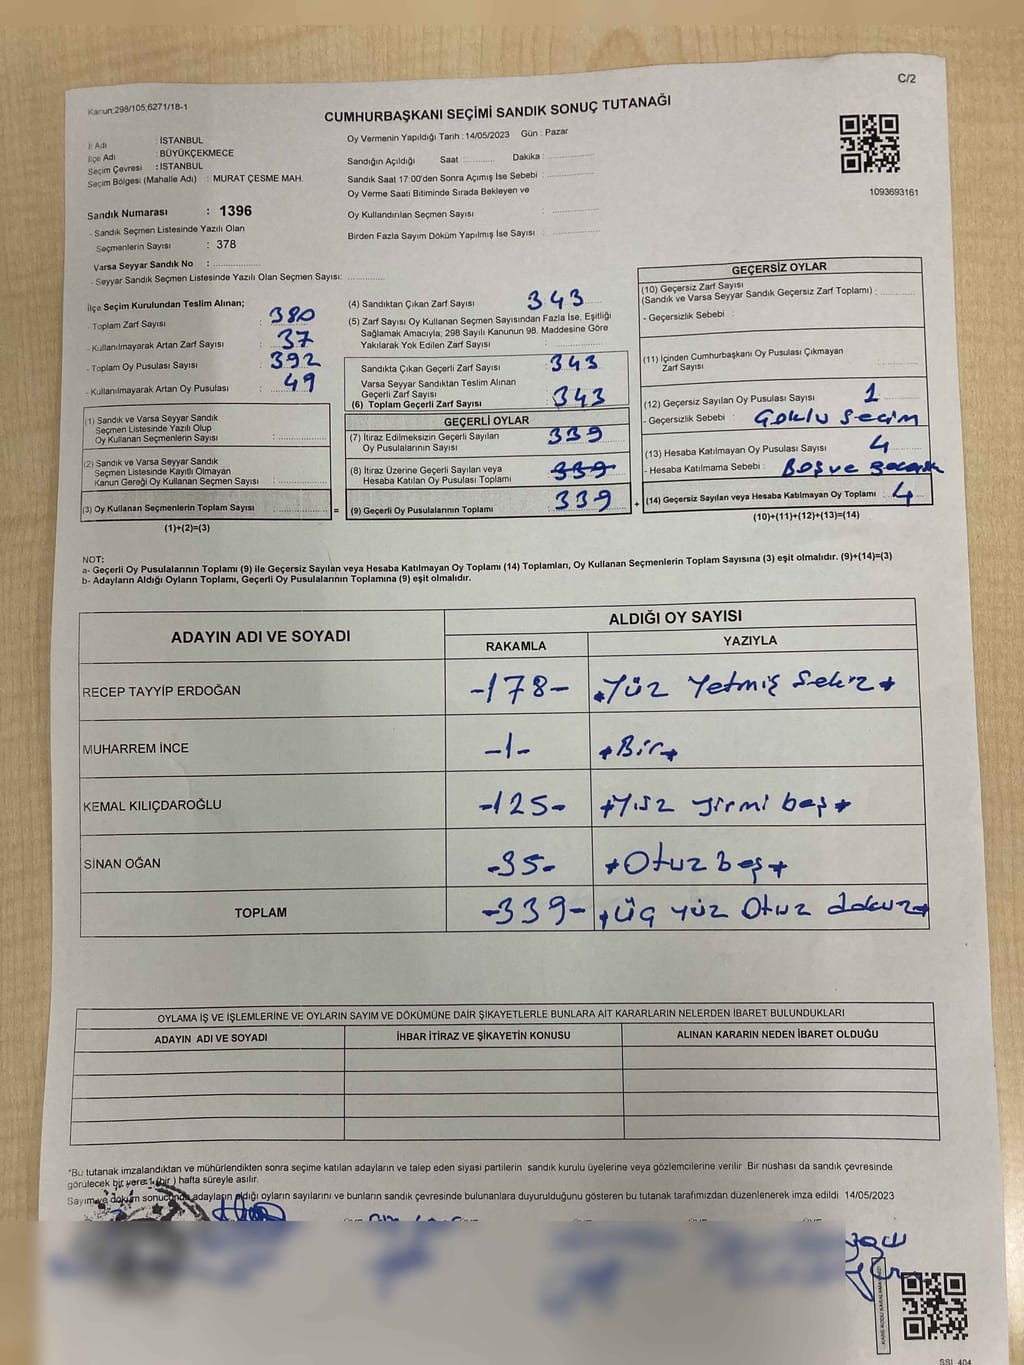 C/2
Kanun:298/105,6271/18-1
CUMHURBAŞKANI SEÇİMİ SANDIK SONUÇ TUTANAĞI
İl Adı : İSTANBUL
İlçe Adı : BÜYÜKÇEKMECE
Seçim Çevresi : İSTANBUL
Seçim Bölgesi (Mahalle Adı) : MURAT ÇESME MAH.
Sandık Numarası : 1396
- Sandık Seçmen Listesinde Yazılı Olan
Seçmenlerin Sayısı : 378
Varsa Seyyar Sandık No :
- Seyyar Sandık Seçmen Listesinde Yazılı Olan Seçmen Sayısı:
Oy Vermenin Yapıldığı Tarih : 14/05/2023 Gün : Pazar
Sandığın Açıldığı Saat : Dakika :
Sandık Saat 17:00'den Sonra Açımış İse Sebebi :
Oy Verme Saati Bitiminde Sırada Bekleyen ve
Oy Kullandırılan Seçmen Sayısı :
Birden Fazla Sayım Döküm Yapılmış İse Sayısı :
1093693161
İlçe Seçim Kurulundan Teslim Alınan;
- Toplam Zarf Sayısı : 380
- Kullanılmayarak Artan Zarf Sayısı : 37
- Toplam Oy Pusulası Sayısı : 392
- Kullanılmayarak Artan Oy Pusulası : 49
(1) Sandık ve Varsa Seyyar Sandık
Seçmen Listesinde Yazılı Olup
Oy Kullanan Seçmenlerin Sayısı :
(2) Sandık ve Varsa Seyyar Sandık
Seçmen Listesinde Kayıtlı Olmayan
Kanun Gereği Oy Kullanan Seçmen Sayısı :
(3) Oy Kullanan Seçmenlerin Toplam Sayısı =
(1)+(2)=(3)
(4) Sandıktan Çıkan Zarf Sayısı : 343
(5) Zarf Sayısı Oy Kullanan Seçmen Sayısından Fazla İse, Eşitliği
Sağlamak Amacıyla; 298 Sayılı Kanunun 98. Maddesine Göre
Yakılarak Yok Edilen Zarf Sayısı :
Sandıkta Çıkan Geçerli Zarf Sayısı : 343
Varsa Seyyar Sandıktan Teslim Alınan
Geçerli Zarf Sayısı
(6) Toplam Geçerli Zarf Sayısı : 343
GEÇERLİ OYLAR
(7) İtiraz Edilmeksizin Geçerli Sayılan
Oy Pusulalarının Sayısı : 339
(8) İtiraz Üzerine Geçerli Sayılan veya
Hesaba Katılan Oy Pusulası Toplamı : 339
(9) Geçerli Oy Pusulalarının Toplamı : 339 +
GEÇERSİZ OYLAR
(10) Geçersiz Zarf Sayısı
(Sandık ve Varsa Seyyar Sandık Geçersiz Zarf Toplamı) :
- Geçersizlik Sebebi :
(11) İçinden Cumhurbaşkanı Oy Pusulası Çıkmayan
Zarf Sayısı :
(12) Geçersiz Sayılan Oy Pusulası Sayısı : 1
- Geçersizlik Sebebi : Çoklu Seçim
(13) Hesaba Katılmayan Oy Pusulası Sayısı : 4
- Hesaba Katılmama Sebebi : Boş ve
(14) Geçersiz Sayılan veya Hesaba Katılmayan Oy Toplamı : 4
(10)+(11)+(12)+(13)=(14)
NOT:
a- Geçerli Oy Pusulalarının Toplamı (9) ile Geçersiz Sayılan veya Hesaba Katılmayan Oy Toplamı (14) Toplamları, Oy Kullanan Seçmenlerin Toplam Sayısına (3) eşit olmalıdır. (9)+(14)=(3)
b- Adayların Aldığı Oyların Toplamı, Geçerli Oy Pusulalarının Toplamına (9) eşit olmalıdır.
ADAYIN ADI VE SOYADI ALDIĞI OY SAYISI
RAKAMLA YAZIYLA
RECEP TAYYİP ERDOĞAN -178- Yüz Yetmiş Sekiz
MUHARREM İNCE -1- Bir
KEMAL KILIÇDAROĞLU -125- Yüz yirmi beş
SİNAN OĞAN -35- Otuz beş
TOPLAM -339- Üç yüz Otuz dokuz
OYLAMA İŞ VE İŞLEMLERİNE VE OYLARIN SAYIM VE DÖKÜMÜNE DAİR ŞİKAYETLERLE BUNLARA AİT KARARLARIN NELERDEN İBARET BULUNDUKLARI
ADAYIN ADI VE SOYADI İHBAR İTİRAZ VE ŞİKAYETİN KONUSU ALINAN KARARIN NEDEN İBARET OLDUĞU
*Bu tutanak imzalandıktan ve mühürlendikten sonra seçime katılan adayların ve talep eden siyasi partilerin sandık kurulu üyelerine veya gözlemcilerine verilir. Bir nüshası da sandık çevresinde
görülecek bir yere 1 (bir) hafta süreyle asılır.
Sayım ve döküm sonucunda adayların aldığı oyların sayılarını ve bunların sandık çevresinde bulunanlara duyurulduğunu gösteren bu tutanak tarafımızdan düzenlenerek imza edildi. 14/05/2023
SSI 404